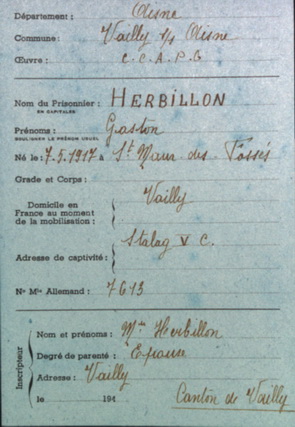 Département : Aisne
Commune : Vailly s/s Aisne
Œuvre : C.C.A.P.G
Nom du Prisonnier : HERBILLON
EN CAPITALES
Prénoms : Gaston
SOULIGNER LE PRÉNOM USUEL
Né le : 7.5.1917 à St Maur des Fossés
Grade et Corps :
Domicile en
France au moment
de la mobilisation : Vailly
Adresse de captivité : Stalag V C.
No Mle Allemand : 7613
Inscripteur
Nom et prénoms : Mme Herbillon
Degré de parenté : Epouse
Adresse : Vailly
le 194
Canton de Vailly